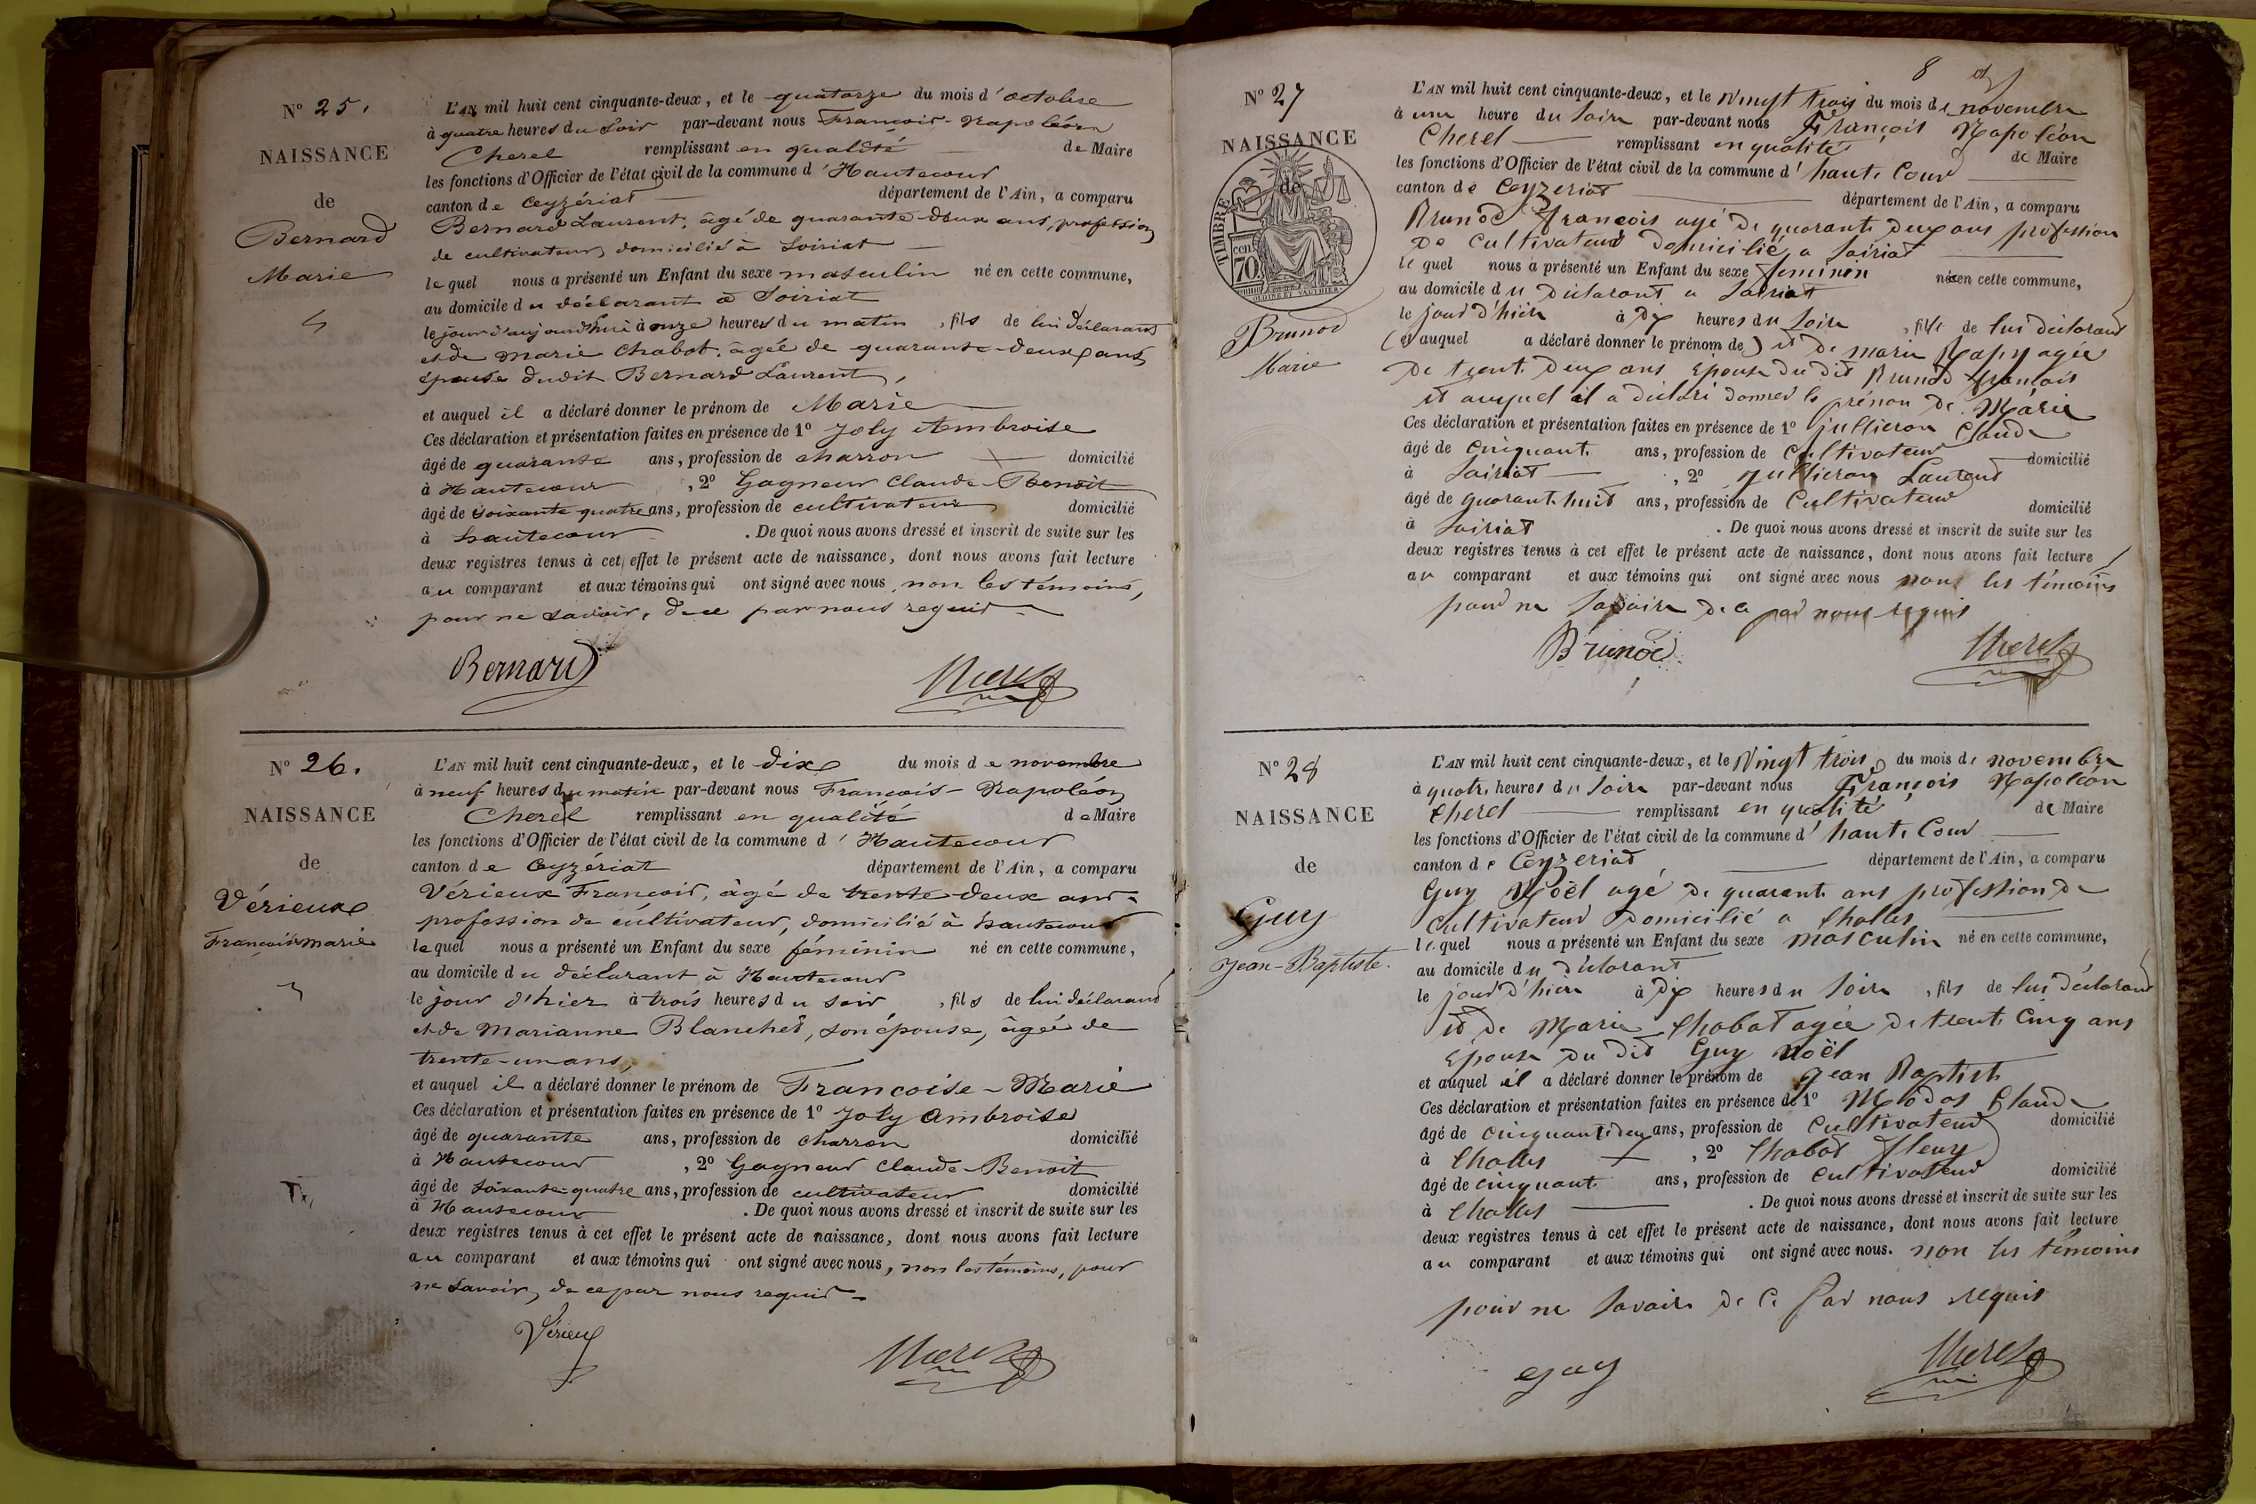 N° 25.
NAISSANCE
de
Bernard
Marie
L'AN mil huit cent cinquante-deux, et le quatorze du mois d'octobre
à quatre heures du soir par-devant nous François-Napoléon
Cherel remplissant en qualité de Maire
les fonctions d'Officier de l'état civil de la commune d'Hautecour
canton de Ceyzériat département de l'Ain, a comparu
Bernard Laurent, âgé de quarante-deux ans, profession
de cultivateur, domicilié à Soiriat
lequel nous a présenté un Enfant du sexe masculin né en cette commune,
au domicile du déclarant à Soiriat
le jour d'aujourd'hui à onze heures du matin, fils de lui déclarant
et de Marie Chabot, âgée de quarante-deux ans,
épouse dudit Bernard Laurent,
et auquel il a déclaré donner le prénom de Marie
Ces déclaration et présentation faites en présence de 1° Joly Ambroise
âgé de quarante ans, profession de charron domicilié
à Hautecour, 2° Gagneur Claude-Benoit
âgé de soixante quatre ans, profession de cultivateur domicilié
à hautecour. De quoi nous avons dressé et inscrit de suite sur les
deux registres tenus à cet effet le présent acte de naissance, dont nous avons fait lecture
au comparant et aux témoins qui ont signé avec nous, non les témoins,
pour ne savoir, de ce par nous requis
Bernard Cherel
N° 26.
NAISSANCE
de
Vérieux
Françoise marie
L'AN mil huit cent cinquante-deux, et le dix du mois de novembre
à neuf heures du matin par-devant nous François-Napoléon
Cherel remplissant en qualité de Maire
les fonctions d'Officier de l'état civil de la commune d'Hautecour
canton de Ceyzériat département de l'Ain, a comparu
Vérieux François, âgé de trente-deux ans
profession de cultivateur, domicilié à hautecour
lequel nous a présenté un Enfant du sexe féminin né en cette commune,
au domicile du déclarant à Hautecour
le jour d'hier à trois heures du soir, fils de lui déclarant
et de Marianne Blanchet, son épouse, âgée de
trente-un ans,
et auquel il a déclaré donner le prénom de Françoise-Marie
Ces déclaration et présentation faites en présence de 1° Joly Ambroise
âgé de quarante ans, profession de charron domicilié
à Hautecour, 2° Gagneur Claude-Benoit
âgé de soixante-quatre ans, profession de cultivateur domicilié
à Hautecour. De quoi nous avons dressé et inscrit de suite sur les
deux registres tenus à cet effet le présent acte de naissance, dont nous avons fait lecture
au comparant et aux témoins qui ont signé avec nous, non les témoins, pour
ne savoir, de ce par nous requis
Vérieux Cherel
8
N° 27
NAISSANCE
de
TIMBRE
70
OUDINE ET VAUTHIER
Brunod
Marie
L'AN mil huit cent cinquante-deux, et le Vingt trois du mois de novembre
à une heure du Soire par-devant nous François Napoléon
Cherel remplissant en qualité de Maire
les fonctions d'Officier de l'état civil de la commune d'haute Cour
canton de Ceyzeriat département de l'Ain, a comparu
Brunod françois agé de quarante deux ans profession
de Cultivateur domicilié a Soiriat
lequel nous a présenté un Enfant du sexe feminin née en cette commune,
au domicile du déclarant a Soiriat
le jour d'hiere à dix heures du Soire, fille de lui déclarant
(et auquel a déclaré donner le prénom de) et de marie Rapy agée
de trente deux ans Epouse du dit Brunod françois
et auquel il a déclaré donner le prénom de Marie
Ces déclaration et présentation faites en présence de 1° jullieron Claude
âgé de Cinquante ans, profession de Cultivateur domicilié
à Soiriat, 2° jullieron Laurent
âgé de quarante huit ans, profession de Cultivateur domicilié
à Soiriat. De quoi nous avons dressé et inscrit de suite sur les
deux registres tenus à cet effet le présent acte de naissance, dont nous avons fait lecture
au comparant et aux témoins qui ont signé avec nous nons les témoins
pour ne Savoire de ce par nous requis
Brunod Cherel
N° 28
NAISSANCE
de
Guy
Jean-Baptiste.
L'AN mil huit cent cinquante-deux, et le Vingt trois du mois de novembre
à quatre heures du Soire par-devant nous François Napoléon
Cherel remplissant en qualité de Maire
les fonctions d'Officier de l'état civil de la commune d'haute Cour
canton de Ceyzeriat département de l'Ain, a comparu
Guy Noël agé de quarante ans profession de
Cultivateur Domicilié a Challes
lequel nous a présenté un Enfant du sexe masculin né en cette commune,
au domicile du déclarant
le jour d'hiere à dix heures du Soire, fils de lui déclarant
et de Marie Chabot agée de trente Cinq ans
Epouse du dit Guy Noël
et auquel il a déclaré donner le prénom de Jean Baptiste
Ces déclaration et présentation faites en présence de 1° Modas Claude
âgé de Cinquante deux ans, profession de Cultivateur domicilié
à Challes, 2° Chabot fleury
âgé de cinquante ans, profession de Cultivateur domicilié
à Challes. De quoi nous avons dressé et inscrit de suite sur les
deux registres tenus à cet effet le présent acte de naissance, dont nous avons fait lecture
au comparant et aux témoins qui ont signé avec nous. non les témoins
pour ne Savoire de Ce Par nous requis
Guy Cherel